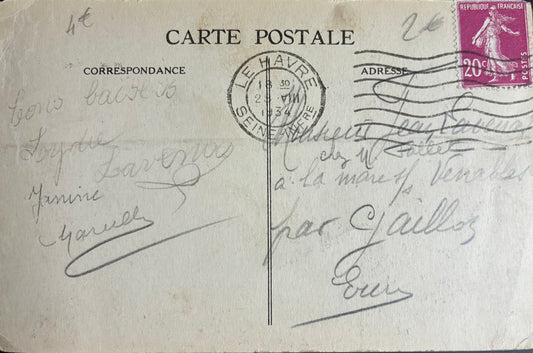 4€
2€
CARTE POSTALE
CORRESPONDANCE
ADRESSE
REPUBLIQUE FRANÇAISE
20c
POSTES
LE HAVRE
18 30
VIII
1934
SEINE INFRE
Bons baisers
Lavenus
Janine
Marcelle
Monsieur Jean
chez Mr
à la mare s/s Venables
par Gaillon
Eure